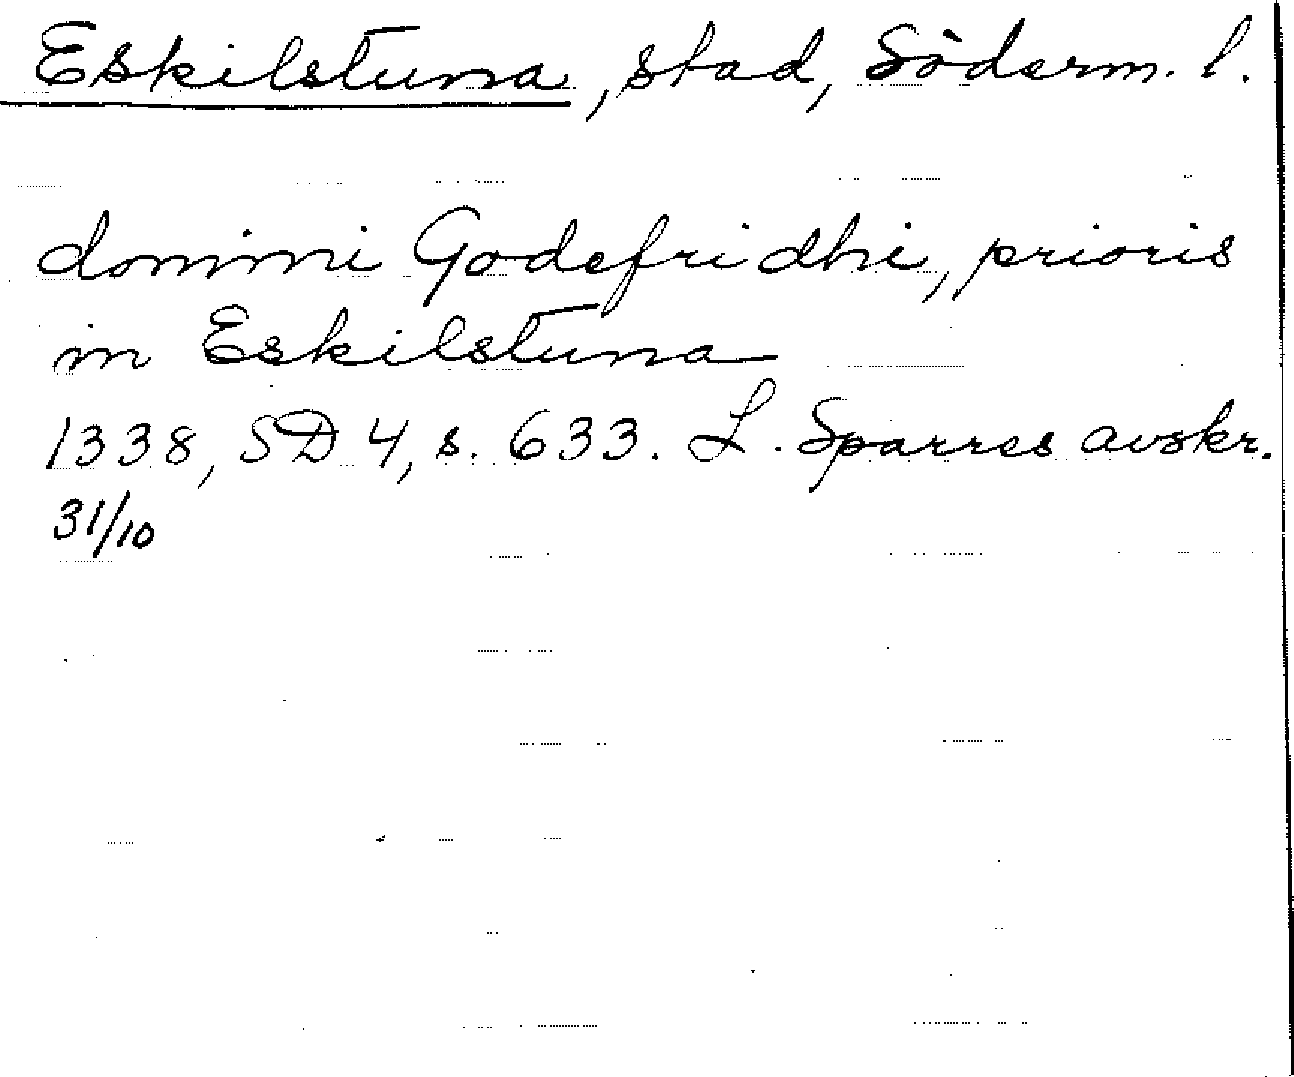 Eskilstuna, stad, Söderm. l.
domini Godefridhi, prioris
in Eskilstuna
1338, SD 4, s. 633. L. Sparres avskr.
31/10